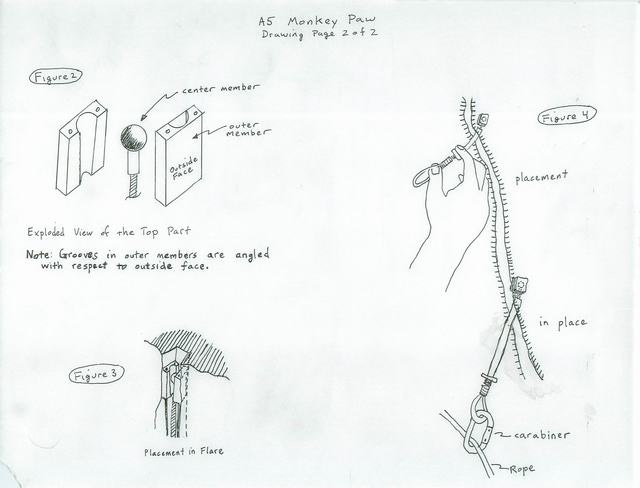 A5 Monkey Paw
Drawing Page 2 of 2
Figure 2
center member
outer
member
Outside
Face
Exploded View of the Top Part
Note: Grooves in outer members are angled
with respect to outside face.
Figure 3
Placement in Flare
Figure 4
placement
in place
carabiner
Rope